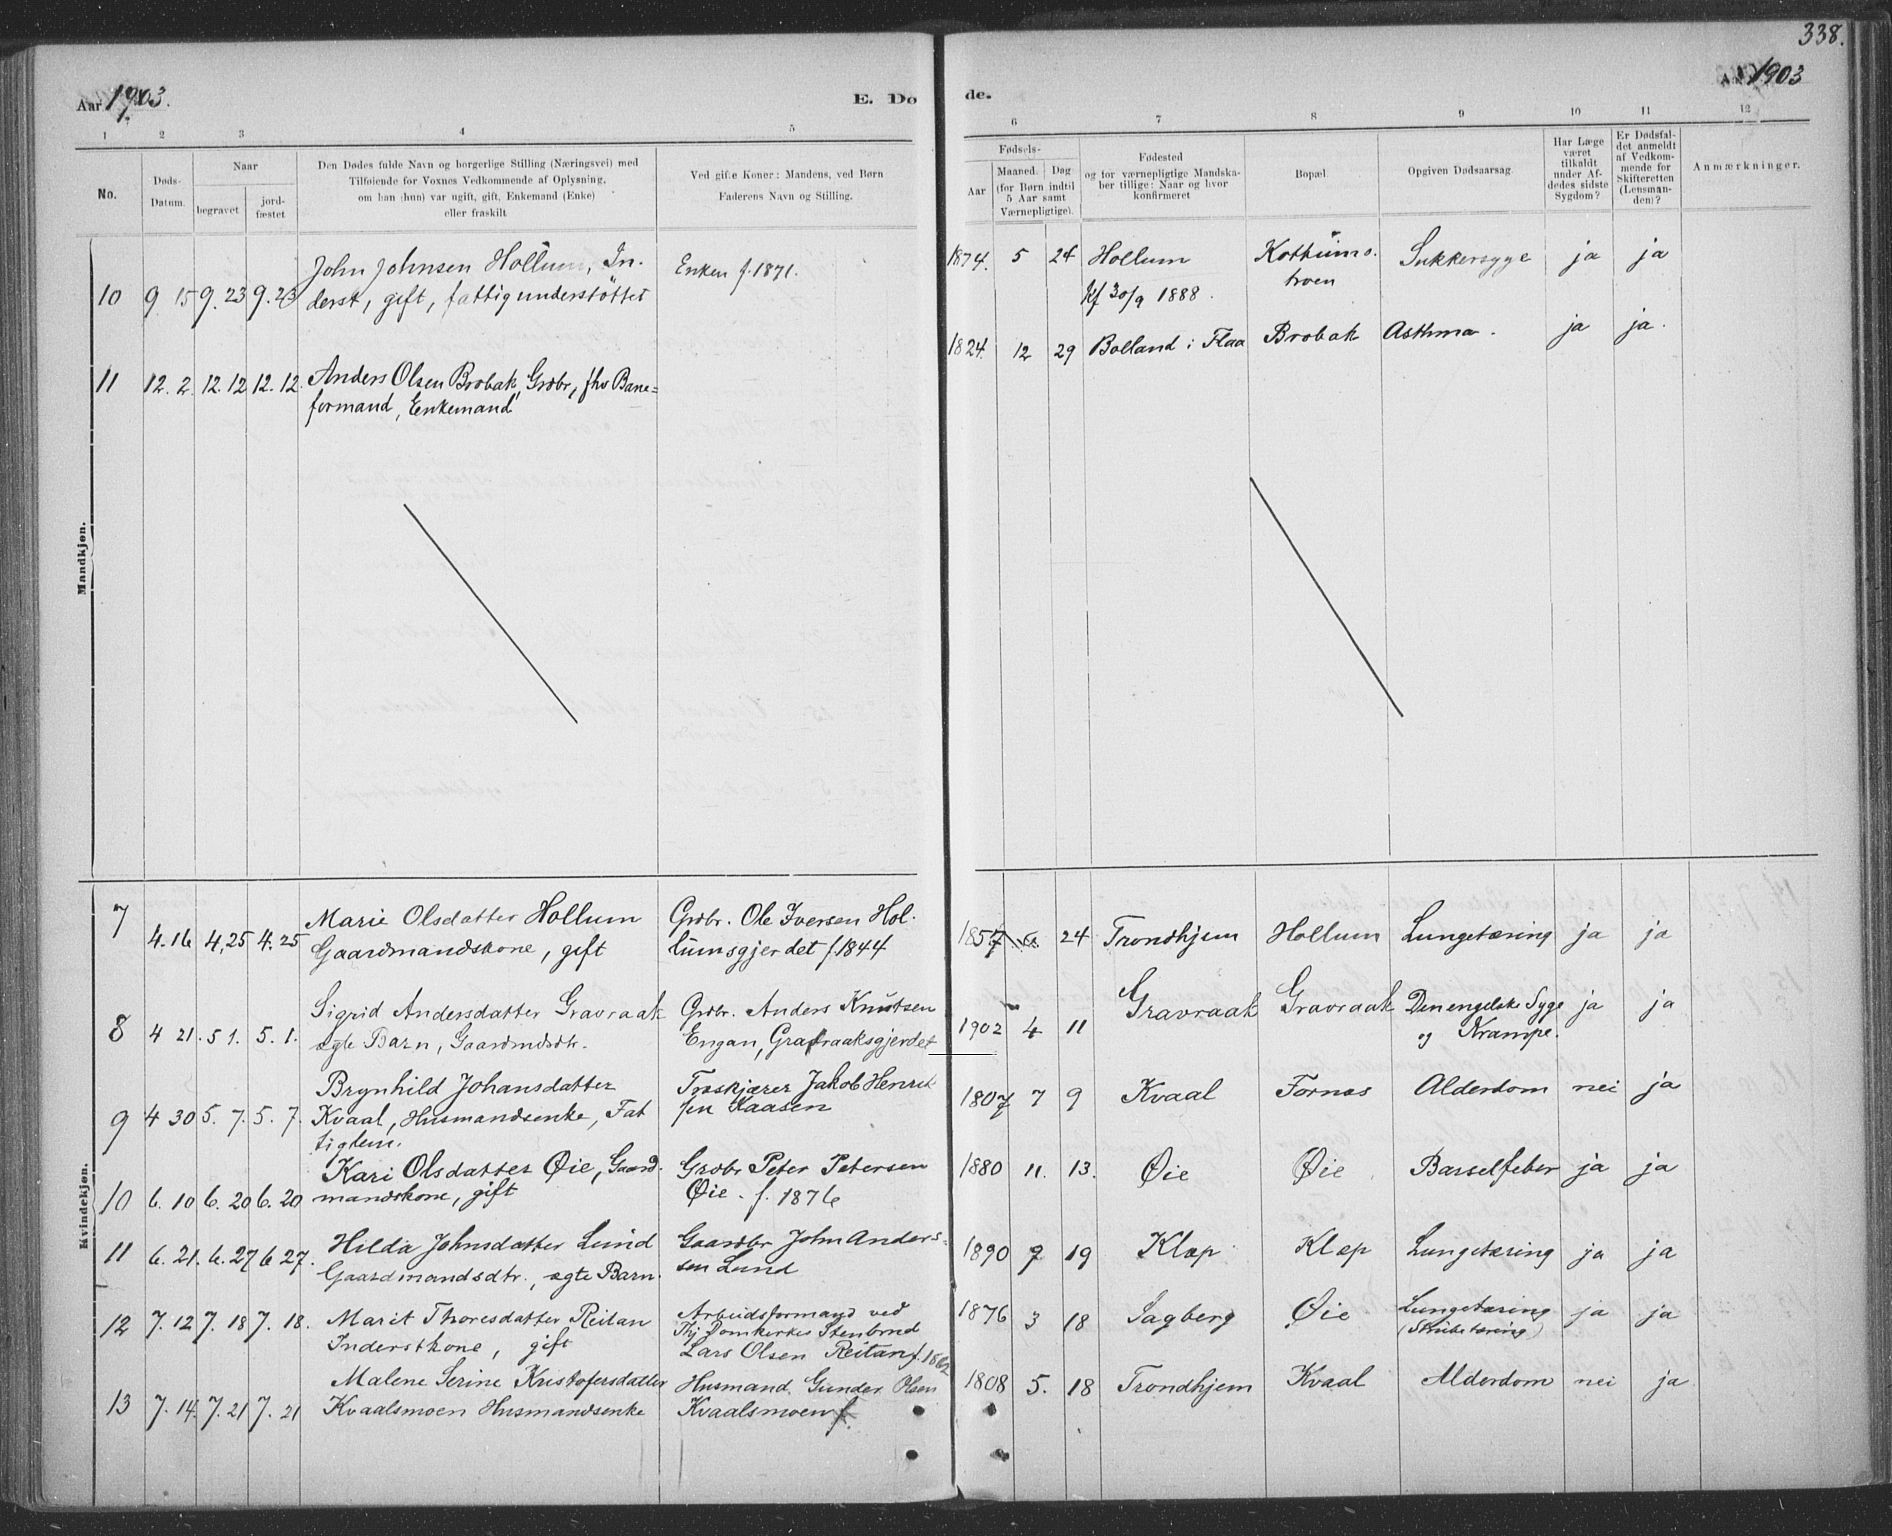 338.
Aar 1903.
E. Dø
de.
Aar 1903
1 2 3 4 5
6 7 8 9 10 11 12
No.
Døds-
Datum.
Naar
begravet
jord-
fæstet
Den Dødes fulde Navn og borgerlige Stilling (Næringsvei) med
Tilføiende for Voxnes Vedkommende af Oplysning,
om han (hun) var ugift, gift, Enkemand (Enke)
eller fraskilt
Ved gifte Koner: Mandens, ved Børn
Faderens Navn og Stilling.
Fødsels-
Aar
Maaned. Dag
(for Børn indtil
5 Aar samt
Værnepligtige).
Fødested
og for værnepligtige Mandska-
ber tillige: Naar og hvor
konfirmeret
Bopæl.
Opgiven Dødsaarsag.
Har Læge
været
tilkaldt
under Af-
dødes sidste
Sygdom?
Er Dødsfal-
det anmeldt
af Vedkom-
mende for
Skifteretten
(Lensman-
den)?
Anmærkninger.
Mandkjøn.
John Johnsen Hollum, In- Enken f. 1871. 1874. 5 24 Hollum Sukkersyge ja ja
10 9 15 9. 23 9. 23 derst, gift, fattigunderstöttet Kf 30/9 1888.
11 12. 2. 12. 12 12. 12. Anders Olsen Brobak, Grdbr, fhv Bane= 1824. 12 29 Bolland i Flaa Brobak Asthma. ja ja.
formand, Enkemand
Kvindekjøn.
7 4. 16 4. 25 4. 25 Marie Olsdatter Hollum Grdbr. Ole Iversen Hol- 24 Trondhjem Hollum Lungetæring ja ja
Gaardmandskone, gift lumsgjerdet f. 1844
8 4 21. 5 1. 5. 1. Sigrid Andersdatter Gravraak Grdbr. Anders Knutsen 1902 4 11 Gravraak Gravraak Den engelske Syge ja ja
ægte Barn, Gaardmdsdtr. Engan, Gravraaksgjerdet og Krampe.
9 4 30 5. 7. 5. 7. Brynhild Johansdatter Træskjærer Jakob Henrik- 1807 7 9 Kvaal Fornæs Alderdom nei ja
Kvaal, Husmandsenke, Fat sen Kaasen
tiglem.
10 6. 10 6. 20 6. 20 Kari Olsdatter Øie, Gaard- Grdbr Peter Petersen 1880 11. 13. Øie Øie Barselfeber ja ja
mandskone, gift Øie. f. 1876
11 6. 21. 6. 27 6 27. Hilda Johnsdatter Lund Gaardbr John Anders- 1890 7 19 Klæp Klæp Lungetæring ja ja
Gaardmandsdtr., ægte Barn. sen Lund
12 7. 12 7. 18 7. 18. Marit Thoresdatter Reitan Arbeidsformand ved 1876 3 18 Sagberg Øie Lungetæring ja ja
Inderstkone, gift Thj Domkirkes Stenbrud (Strubetæring)
Lars Olsen Reitan f. 1862
13 7. 14. 7. 21 7. 21 Malene Serine Kristofersdatter Husmand Gunder Olsen 1808 5. 18 Trondhjem Kvaal Alderdom nei ja
Kvaalsmoen Husmandsenke Kvaalsmoen